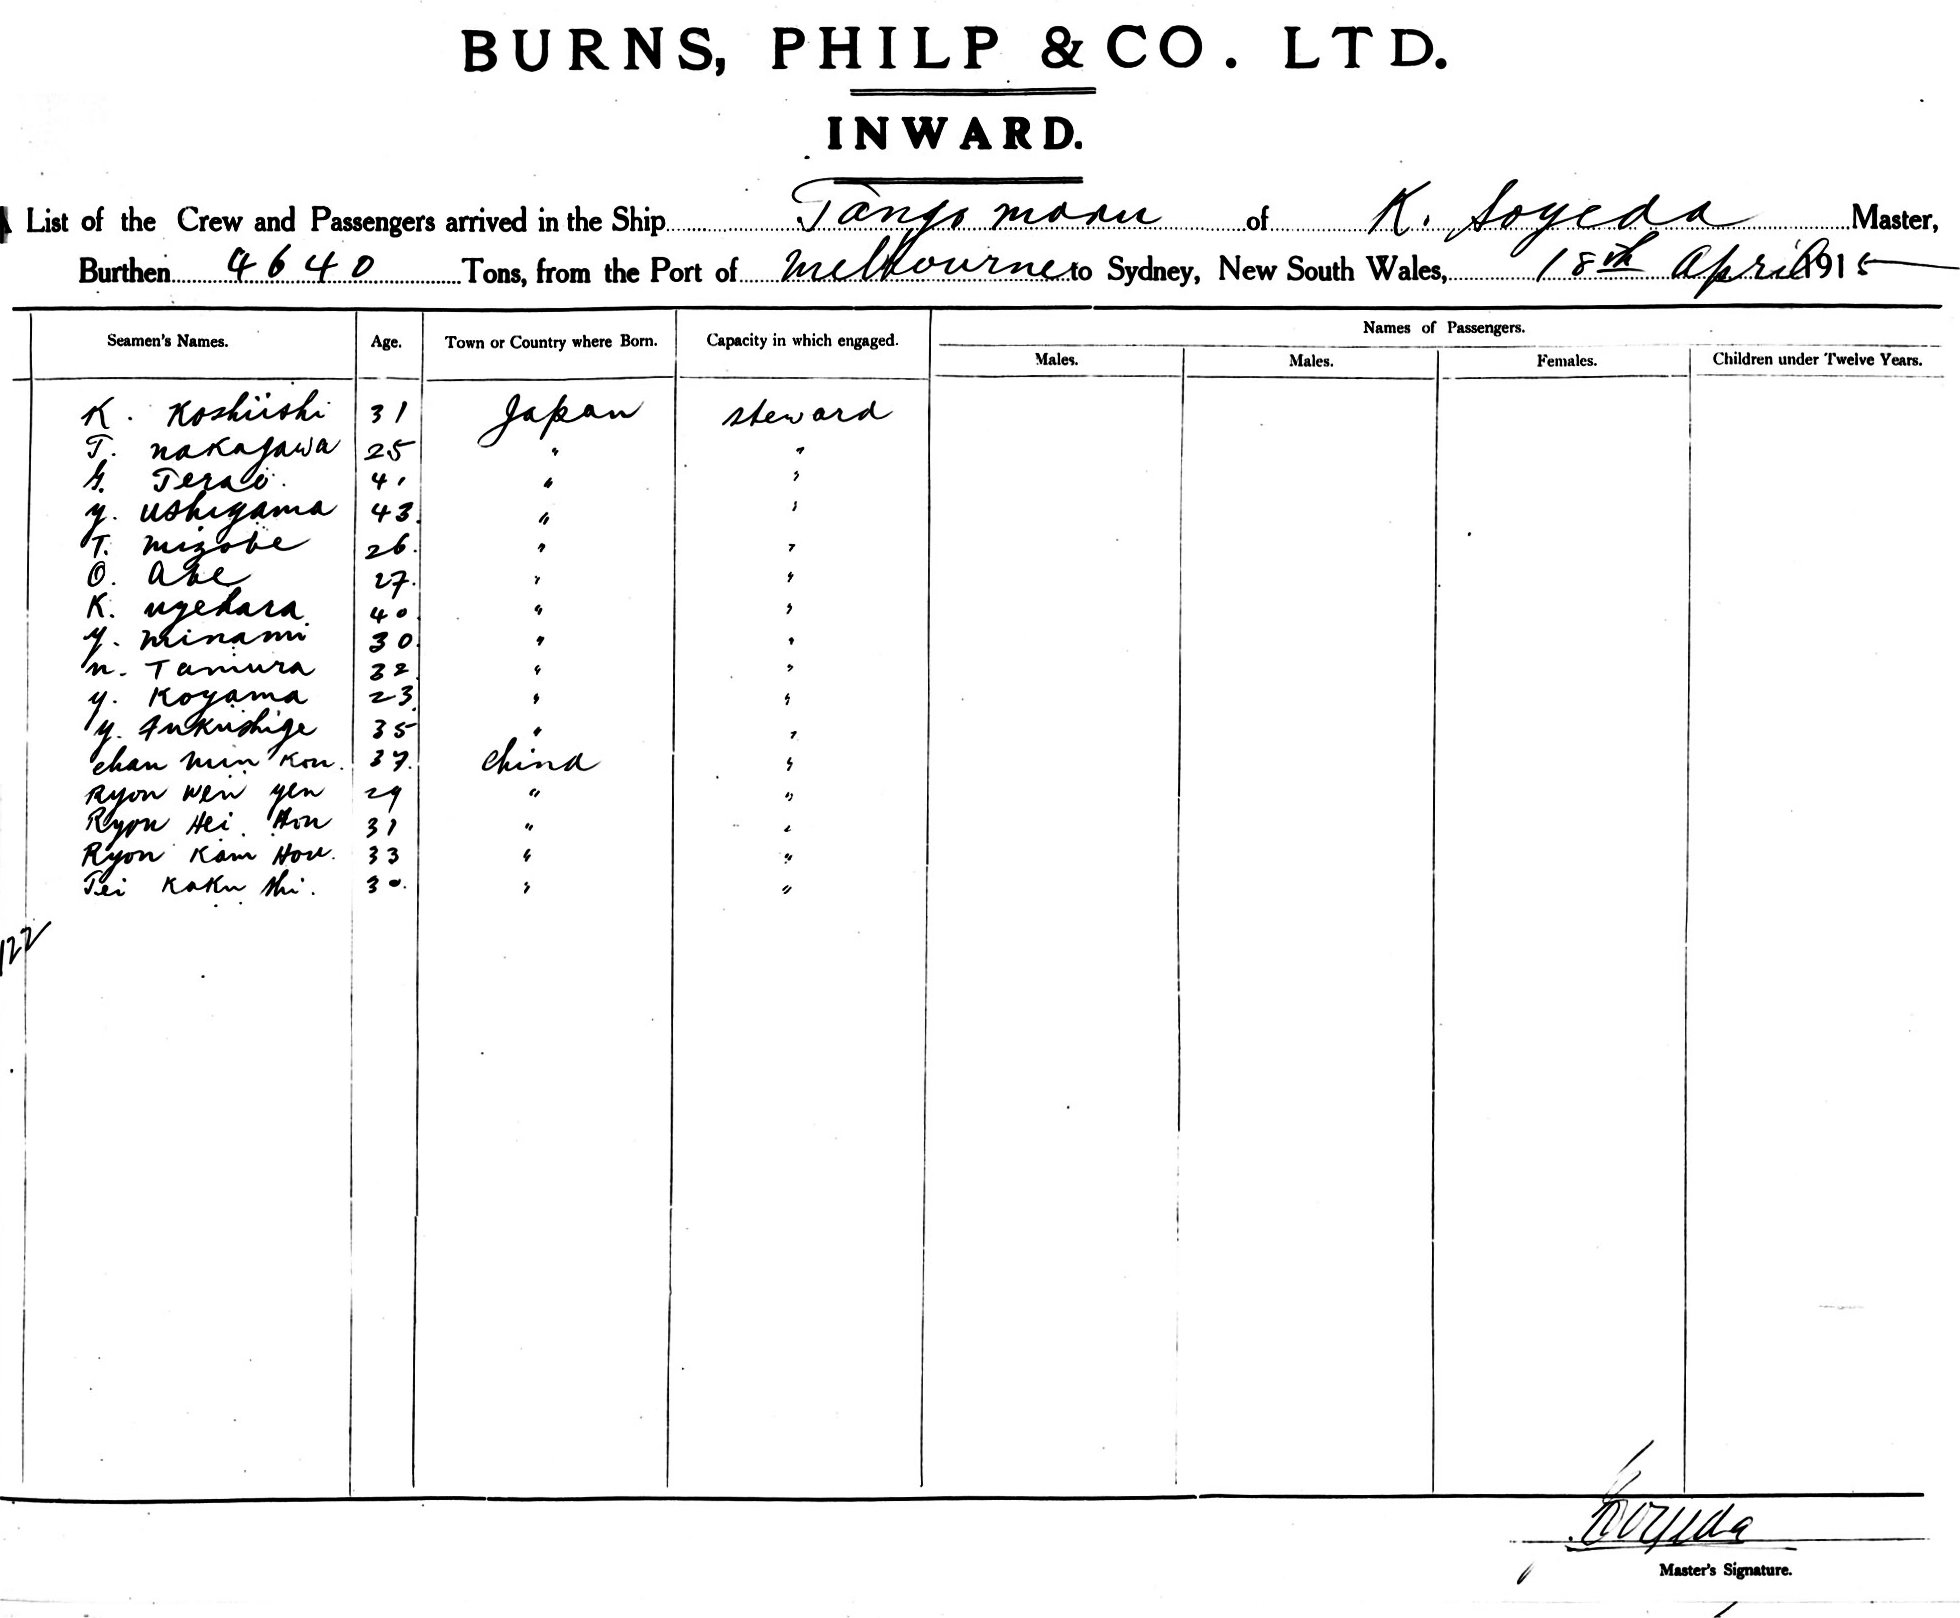 BURNS, PHILP & CO. LTD.
INWARD.
List of the Crew and Passengers arrived in the Ship Tango maru of K. Soyeda Master,
Burthen 4640 Tons, from the Port of Melbourne to Sydney, New South Wales, 18th April 1915
Names of Passengers.
Seamen's Names. Age. Town or Country where Born. Capacity in which engaged. Males. Males. Females. Children under Twelve Years.
K. Koshiishi 31 Japan steward
T. nakagawa 25 " "
G. Terao. 41 " "
y. ushiyama 43 " "
T. mizobe 26 " "
O. Abe 27 " "
K. uyehara 40 " "
y. minami 30 " "
n. Tamura 32 " "
y. Koyama 23 " "
y. Fukushige 35 " "
chan min Kon. 37 China "
Ryon Wen yen 29 " "
Ryon Hei Hon 31 " "
Ryon Kam Hou. 33 " "
Tei Kaku Shi. 30 " "
122
Soyeda
Master's Signature.